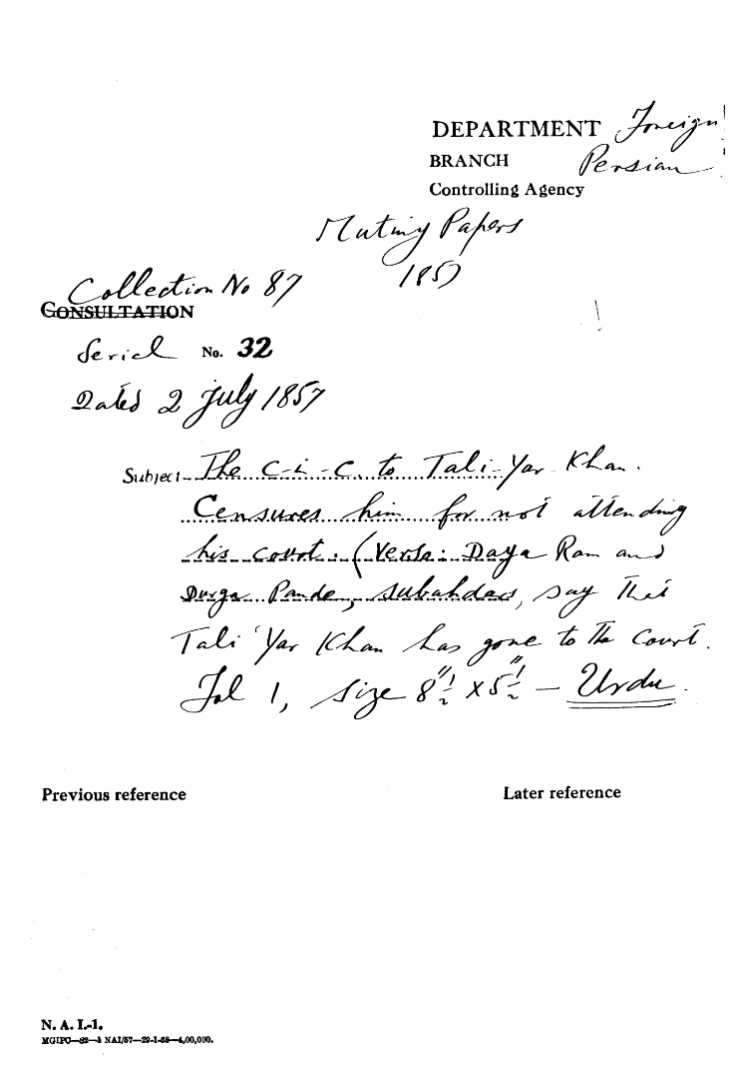 DEPARTMENT Foreign
BRANCH Persian
Controlling Agency
Mutiny Papers
1857
Collection No 87
CONSULTATION
Serial No. 32
Dated 2 July 1857
Subject The C-i-C. to Tali-Yar Khan.
Censures him for not attending
his court. (Verso: Daya Ram and
Durga Pande, subahdars, say that
Tali Yar Khan has gone to the Court.
Fol 1, size 8"½ x 5"½ — Urdu.
Previous reference
Later reference
N. A. I.-1.
MGIPC—S2—3 NAI/57—29-1-58—4,00,000.